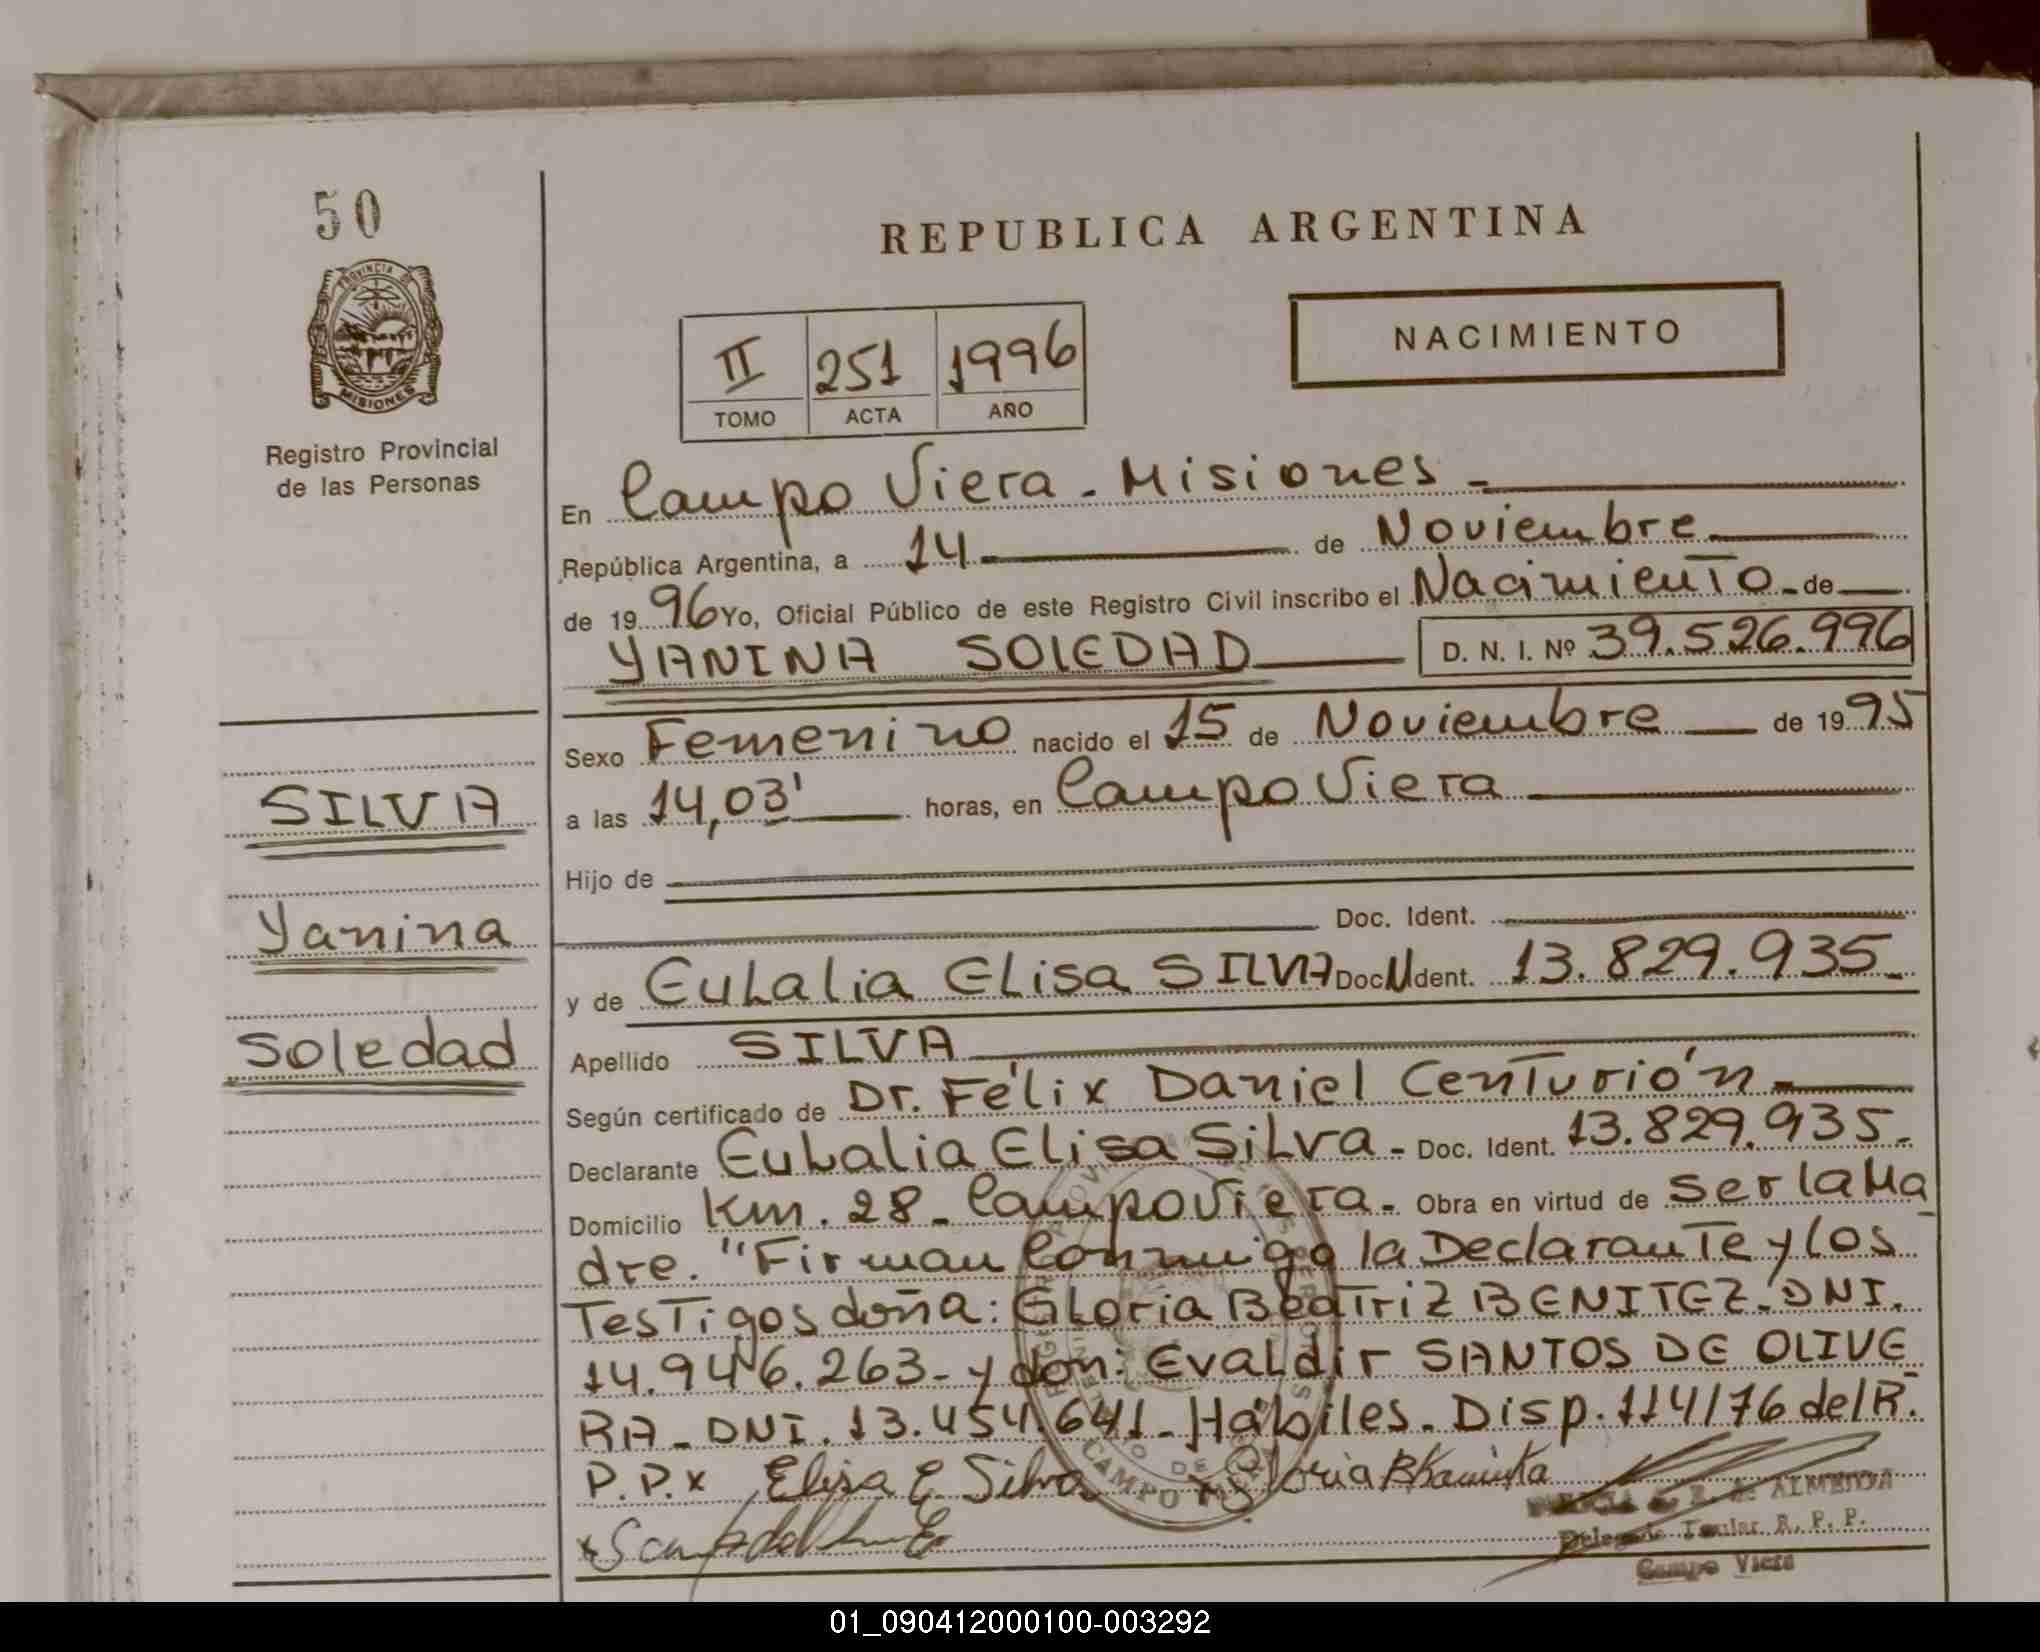 50
PROVINCIA DE
MISIONES
Registro Provincial
de las Personas
REPUBLICA ARGENTINA
NACIMIENTO
II 251 1996
TOMO ACTA AÑO
En Campo Viera - Misiones -
República Argentina, a 14 - de Noviembre
de 1996 Yo, Oficial Público de este Registro Civil inscribo el Nacimiento - de
YANINA SOLEDAD D. N. I. Nº 39.526.996
Sexo Femenino nacido el 15 de Noviembre de 1995
a las 14,03' horas, en Campo Viera
Hijo de
Doc. Ident.
y de Eulalia Elisa SILVA Doc. Ident. 13.829.935-
Apellido SILVA
Según certificado de Dr. Félix Daniel Centurión -
Declarante Eulalia Elisa Silva - Doc. Ident. 13.829.935-
Domicilio Km. 28 - Campo Viera - Obra en virtud de ser la Ma
dre. "Firman Conmigo la Declarante y los
Testigos doña: Gloria Beatriz BENITEZ - DNI.
14.946.263 - y don: Evaldir SANTOS DE OLIVE
RA - DNI. 13.454.641 - Hábiles - Disp. 114/76 del R.
P.P. x Elisa E Silva x Gloria B
x
ALMEIDA
Delegado Titular R. P. P.
Campo Viera
SILVA
Yanina
Soledad
01_090412000100-003292